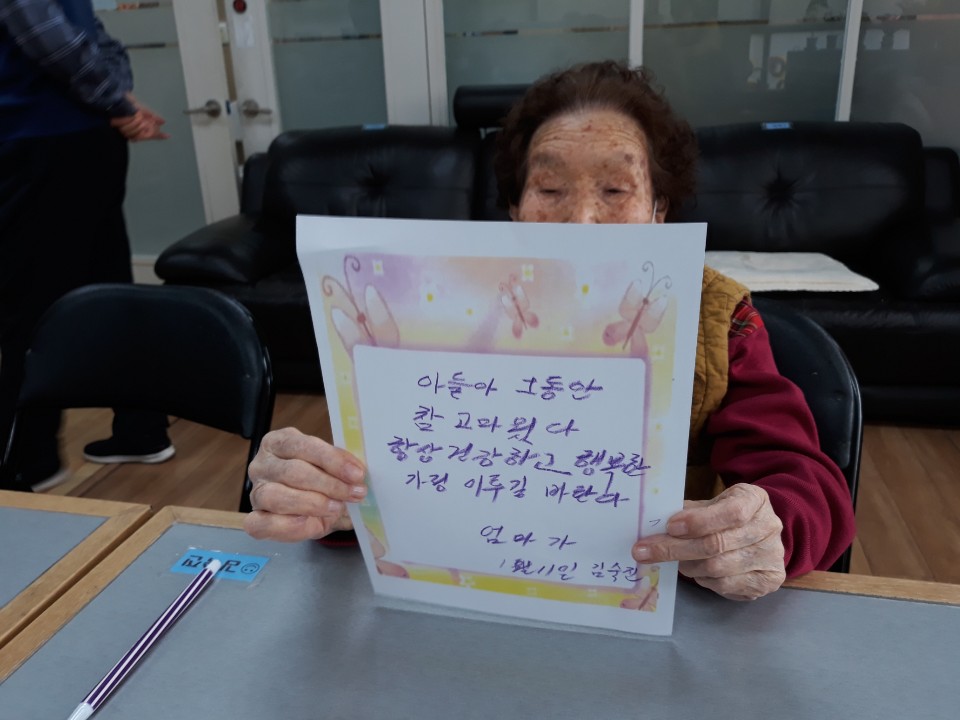 아들아 그동안
참 고마웠다
항상건강하고 행복한
가정 이루길 바란다
엄마가
1월11일 김숙진